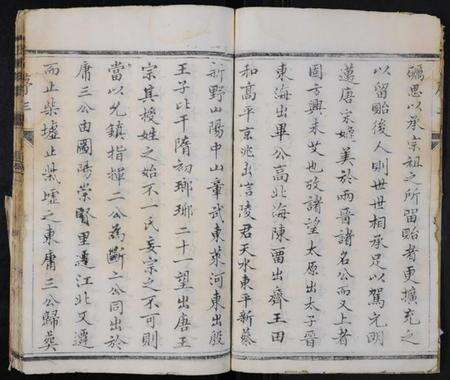 彌思以承宗祖之所留貽者更擴充之
以留貽後人則世世相承足以駕元明
邁唐宗姬美於兩晉諸名公而又上者
固方興未艾也攷諸望太原出太子晉
東海出畢公高北海陳留出齊王田
和高平京兆出信陵君天水東平新蔡
新野山陽中山章武東萊河東出殷
王子比干隋初瑯琊二十一望出唐王
宗其授姓之始不一氏妄宗之不可則
當以允鎮指揮二公為斷二公同出於
庸三公由圌陽崇賢里邁江北又遷
而止柴墟止柴墟之東庸三公歸葬
序三